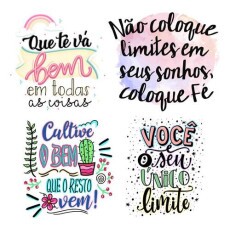 Que te vá
bem
em todas
as coisas
Não coloque
limites em
seus sonhos,
coloque Fé
Cultive
O BEM
QUE O RESTO
vem!
VOCÊ
é o seu
ÚNICO
limite